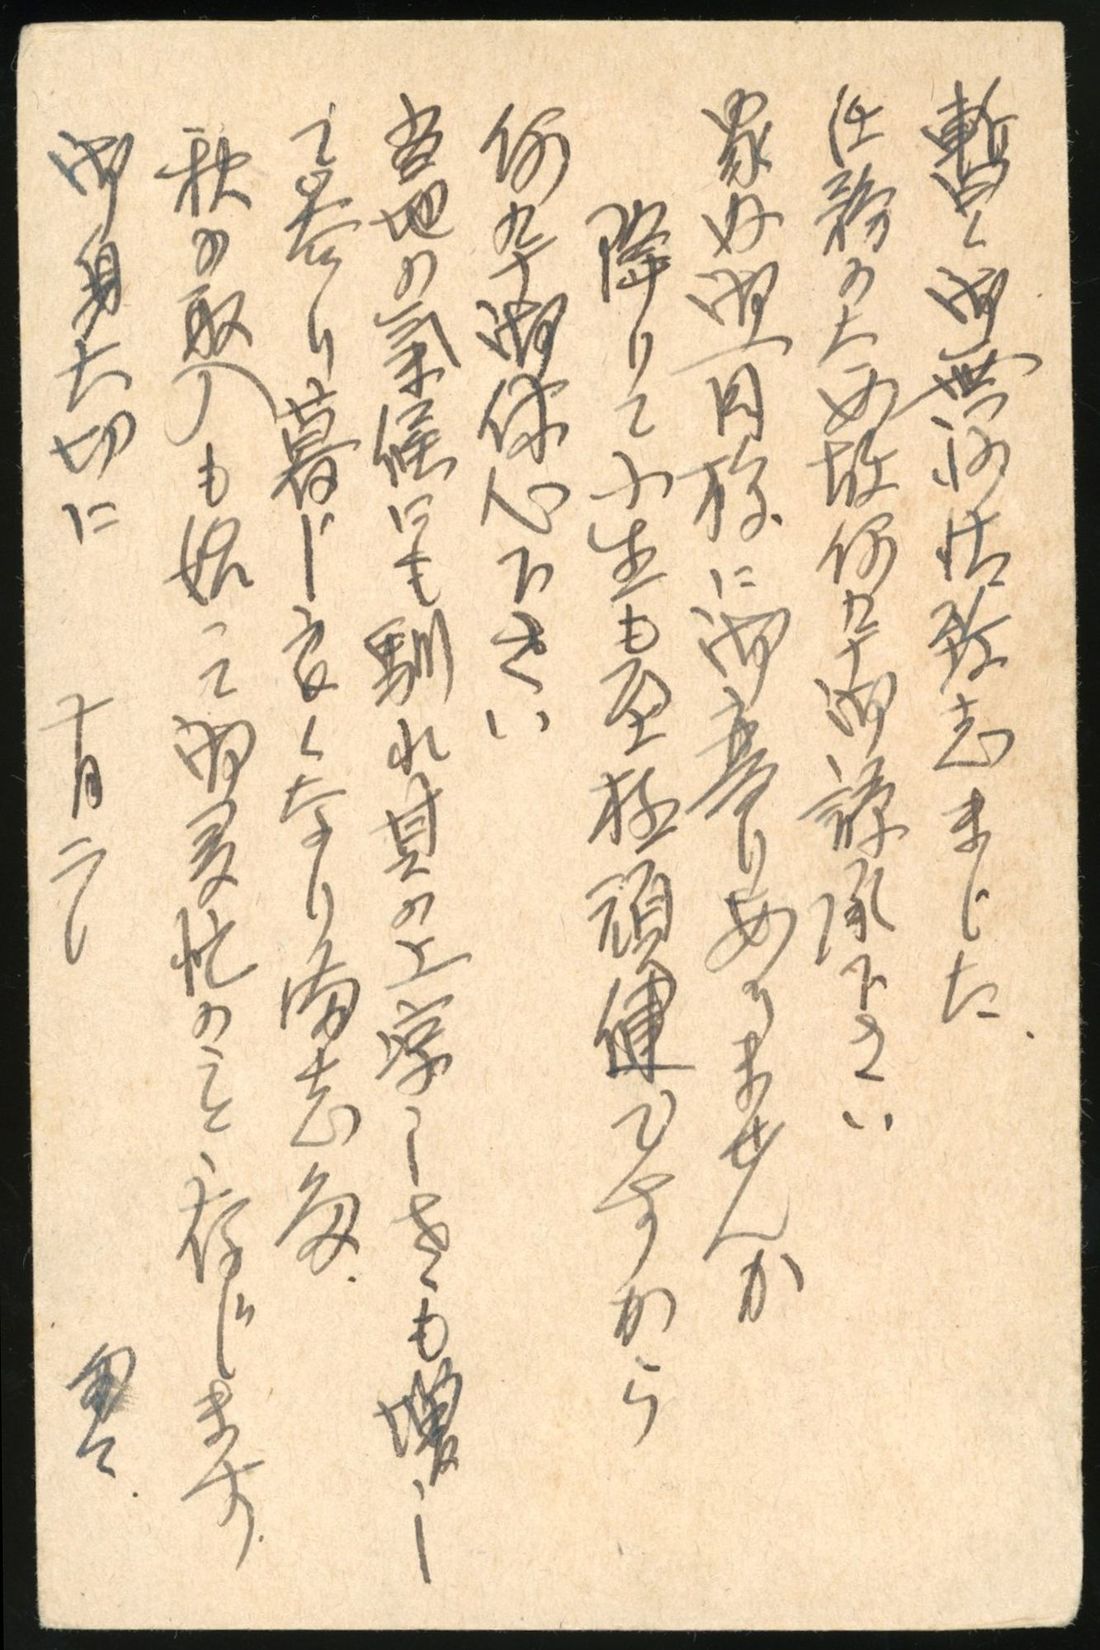 暫く御無沙汰致志ました
任務のため故何卒御諒承下さい
家内皆々様に御変りありませんか
降りて小生も至極頑健ですから
何卒御休心下さい
当地の気候にも馴れ其の上涼しさも増し
て参り暮し良くなり満志多
秋の取入も始って御多忙のことゝ存じます
御身大切に　十月二〇　匆々